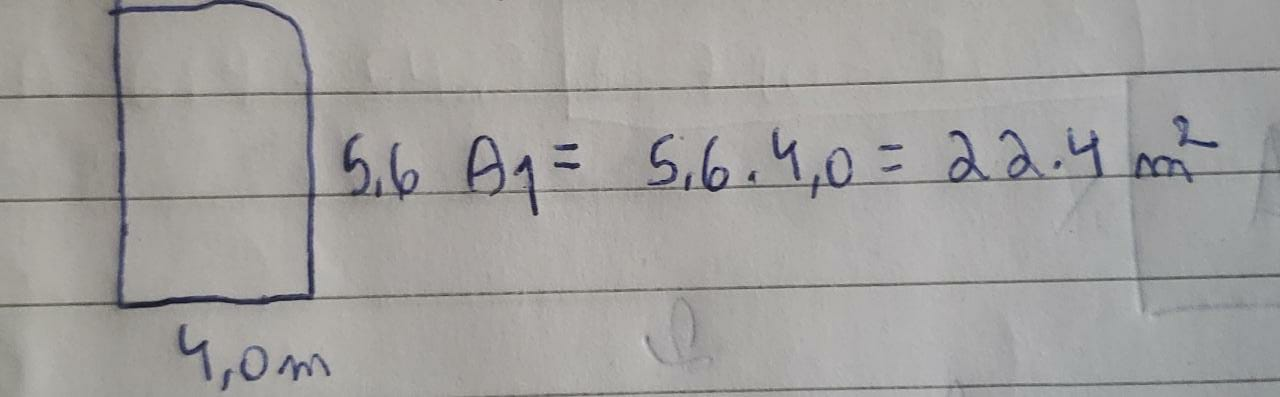 5,6 A1 = 5,6 . 4,0 = 22.4 m²
4,0m